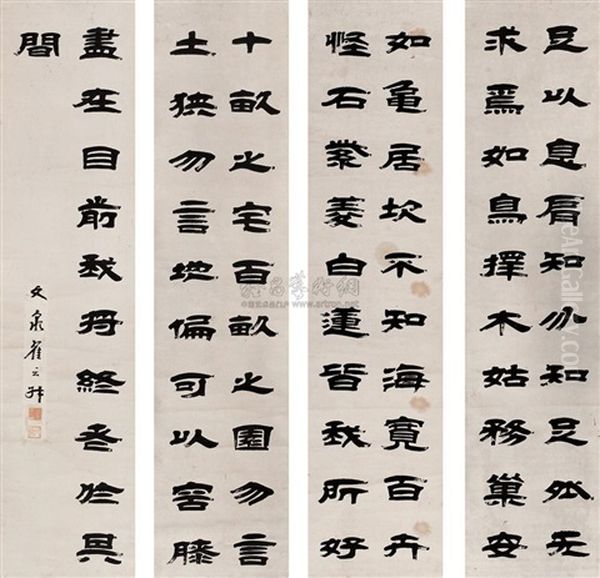 足以息肩知分知足外无
求焉如鳥擇木姑務巢安
如龜居坎不知海寬百卉
怪石紫菱白蓮皆我所好
十畝之宅百畝之園勿言
土狹勿言地偏可以容膝
盡在目前我將終老於其
間
文泉崔云
雅昌藝術網
www.artron.net